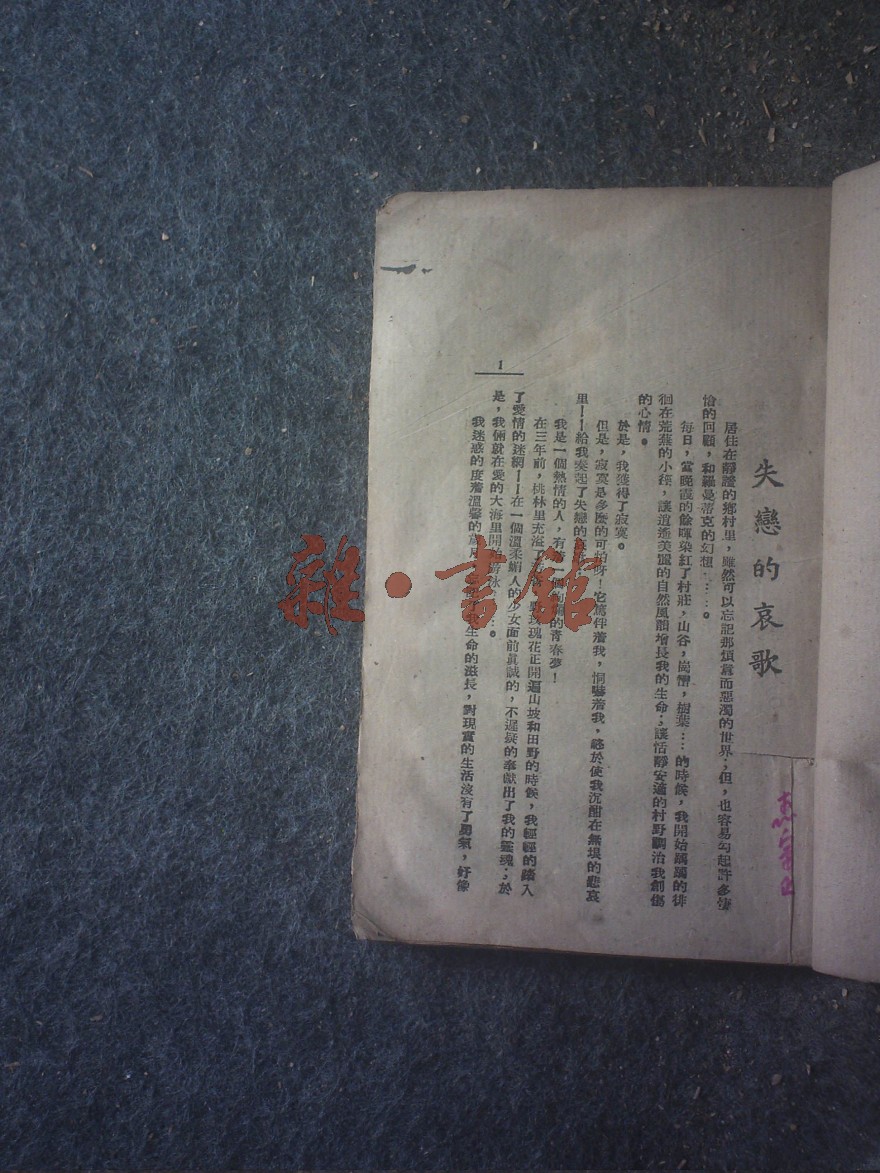 失戀的哀歌
居住在靜謐的鄉村里，雖然可以忘記那煩囂而惡濁的世界；但，也容易勾起許多悽
愴的回顧，和羅曼蒂克的幻想……。
每日，當晚霞的餘暉染紅了村莊，山谷，崗巒，樹葉……的時候，我開始躑躅的徘
徊在荒蕪的小徑，讓逍遙美麗的自然風韻增長我的生命；讓恬靜安適的村野調治我創傷
的心情。
於是，我獲得了寂寞。
但是，寂寞是多麼的可怕呀！它駕伴着我，恫嚇着我，終於使我沉酣在無垠的悲哀
里——給我奏起了失戀的
我是一個熱情的人，有着一個的青春夢！
在三年前，桃林里充溢了玫瑰花正開遍山坡和田野的時候，我輕輕的踏入
了愛情的迷網——在一個溫柔媚人的少女面前真誠的，不遲疑的奉獻出了我的靈魂；於
是，我倆就在愛的大海里開始游泳……。
我迷惑的度着溫馨的歲月生命的滋長，對現實的生活沒有了勇氣，好像
1
雜·書館